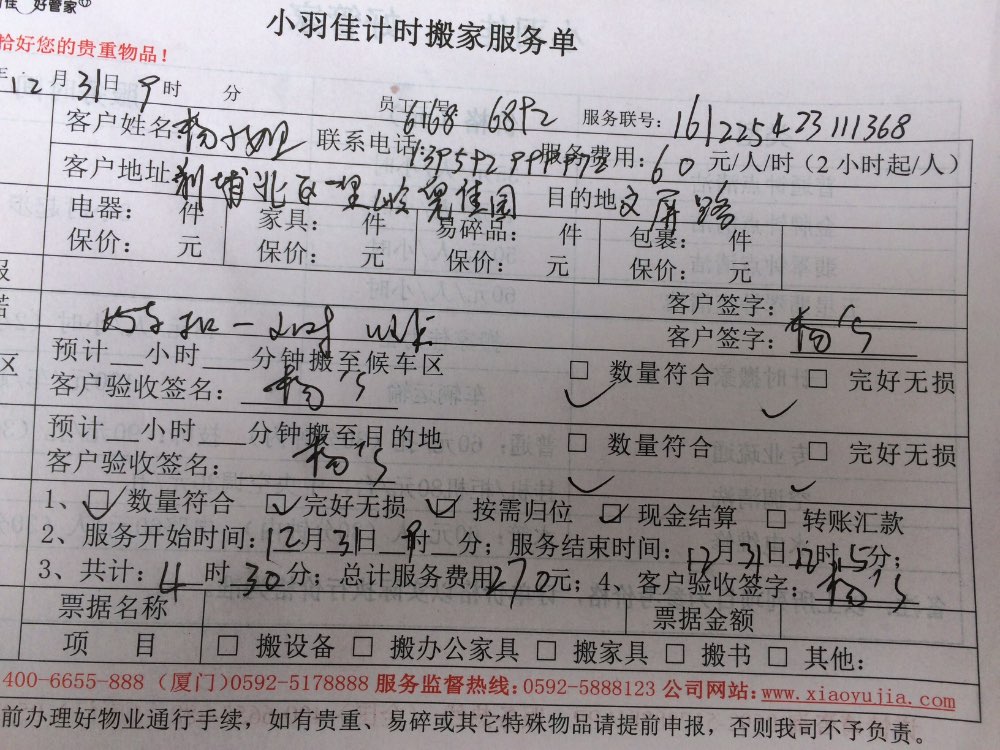 好管家
小羽佳计时搬家服务单
拾好您的贵重物品！
年12月31日9时 分
员工工号: 6168 6892 服务联号: 161225423111368
客户姓名: 杨小姐 联系电话: 服务费用: 60 元/人/时（2小时起/人）
客户地址: 北区 佳园 目的地 文屏路
电器: 件 家具: 件 易碎品: 件 包裹: 件
保价: 元 保价: 元 保价: 元 保价: 元
客户签字:
扣一小时 客户签字: 杨
预计__小时___分钟搬至候车区 □ 数量符合 □ 完好无损
客户验收签名: 杨
预计__小时___分钟搬至目的地 □ 数量符合 □ 完好无损
客户验收签名: 杨
1、☑数量符合 ☑完好无损 ☑按需归位 ☑现金结算 □ 转账汇款
2、服务开始时间: 12月31日 9时__分; 服务结束时间: 12月31日 时15分;
3、共计: 4时30分; 总计服务费用270元; 4、客户验收签字: 杨
票据名称 票据金额
项 目 □ 搬设备 □ 搬办公家具 □ 搬家具 □ 搬书 □ 其他:
400-6655-888 (厦门)0592-5178888 服务监督热线:0592-5888123 公司网站:www.xiaoyujia.com
前办理好物业通行手续，如有贵重、易碎或其它特殊物品请提前申报，否则我司不予负责。